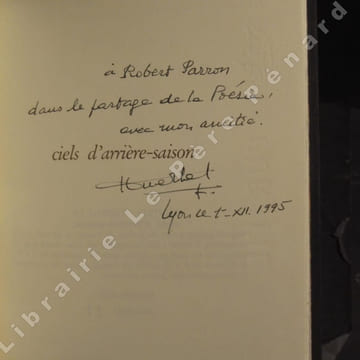 à Robert Parron
dans le partage de la Poésie,
avec mon amitié.
ciels d'arrière-saison
Lyon le XII. 1995
Librairie Le Père Pénard